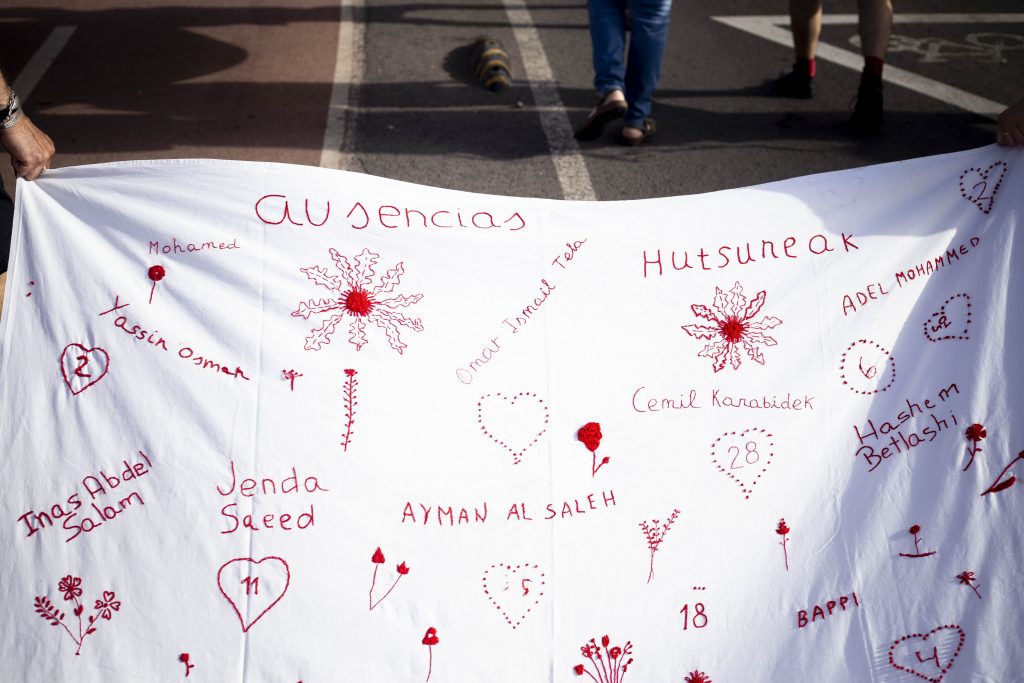 ausencias
Hutsuneak
2
Mohamed
Yassin Osman
2
Omar Ismail Tela
ADEL MOHAMMED
6
Cemil Karabidek
28
Hashem
Betlashi
Inas Abdel
Salam
Jenda
Saeed
11
AYMAN AL SALEH
5
18
BAPPI
4